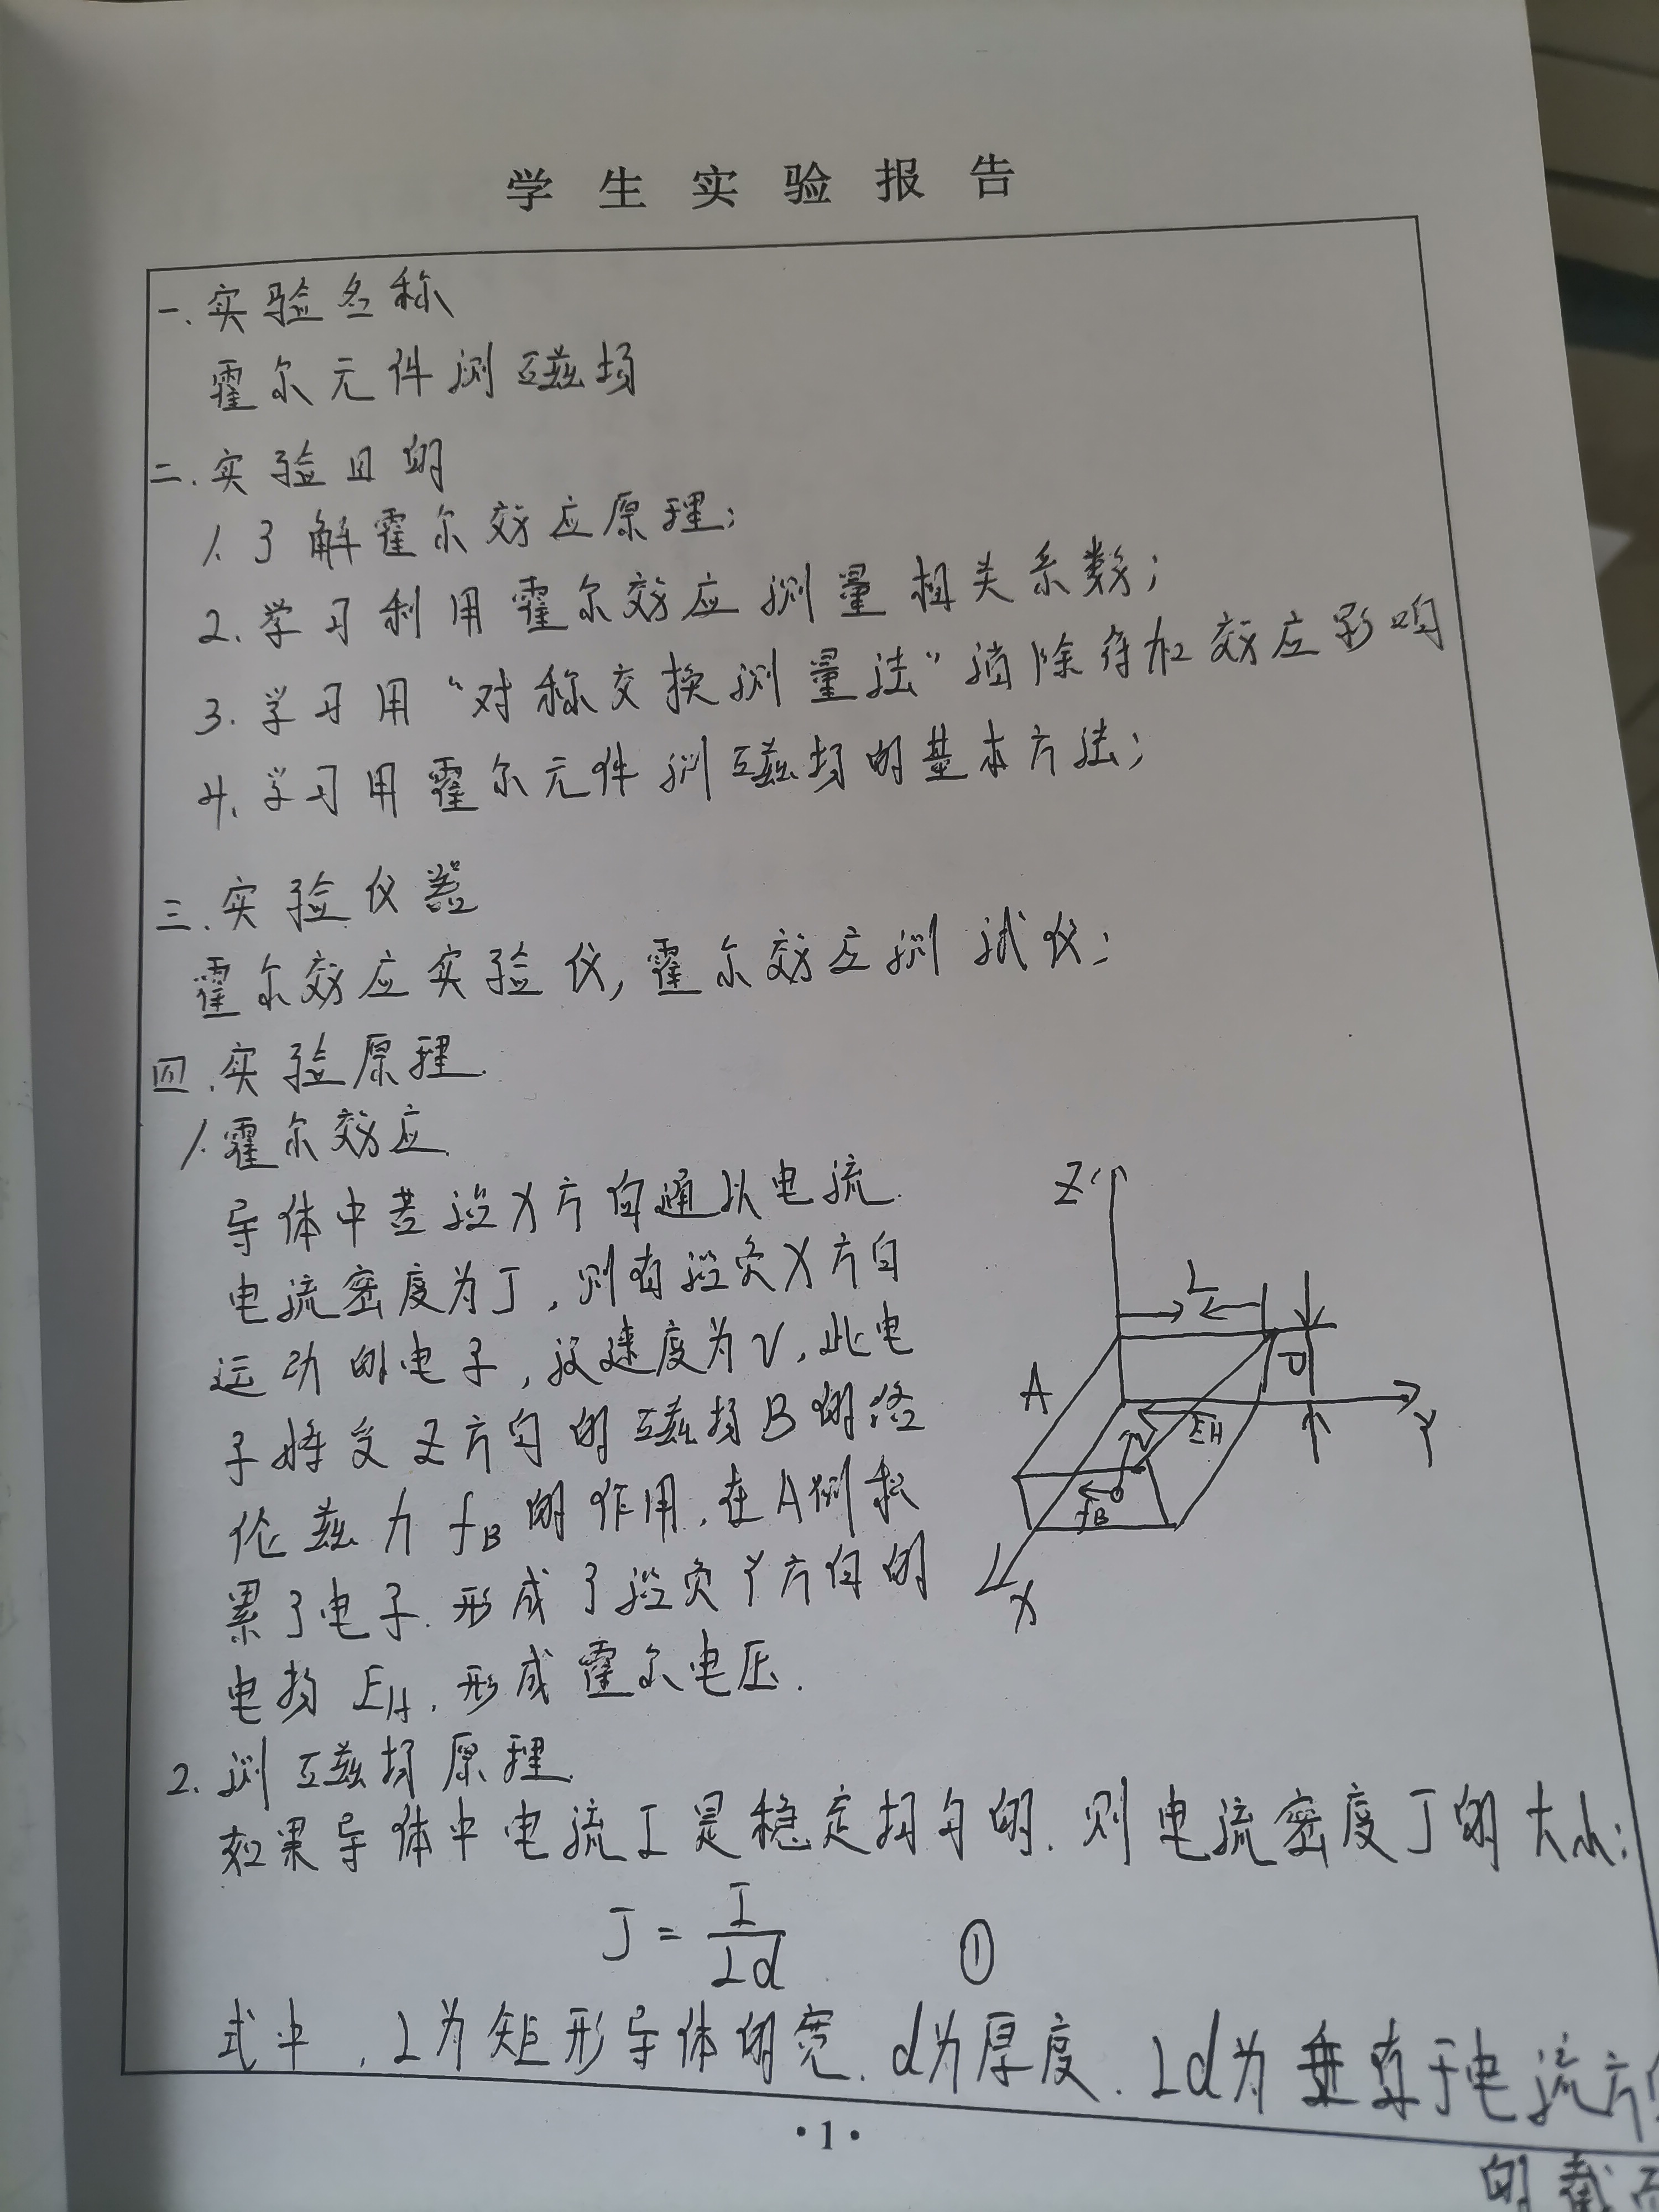 学生实验报告
一.实验名称
霍尔元件测磁场
二.实验目的
1.了解霍尔效应原理;
2.学习利用霍尔效应测量相关系数;
3.学习用“对称交换测量法”消除附加效应影响
4.学习用霍尔元件测磁场的基本方法;
三.实验仪器
霍尔效应实验仪,霍尔效应测试仪;
四.实验原理.
1.霍尔效应.
导体中若沿X方向通以电流.
电流密度为J,则有沿负X方向
运动的电子,设速度为V,此电
子将受Z方向的磁场B的洛
伦兹力fB的作用.在A侧积
累了电子.形成了沿负Y方向的
电场EH.形成霍尔电压.
Z
L
d
A
EH
V
Y
fB
X
2.测磁场原理.
如果导体中电流I是稳定均匀的.则电流密度J的大小:
J = I/Ld ①
式中,L为矩形导体的宽.d为厚度.Ld为垂直于电流方向
的截面
·1·